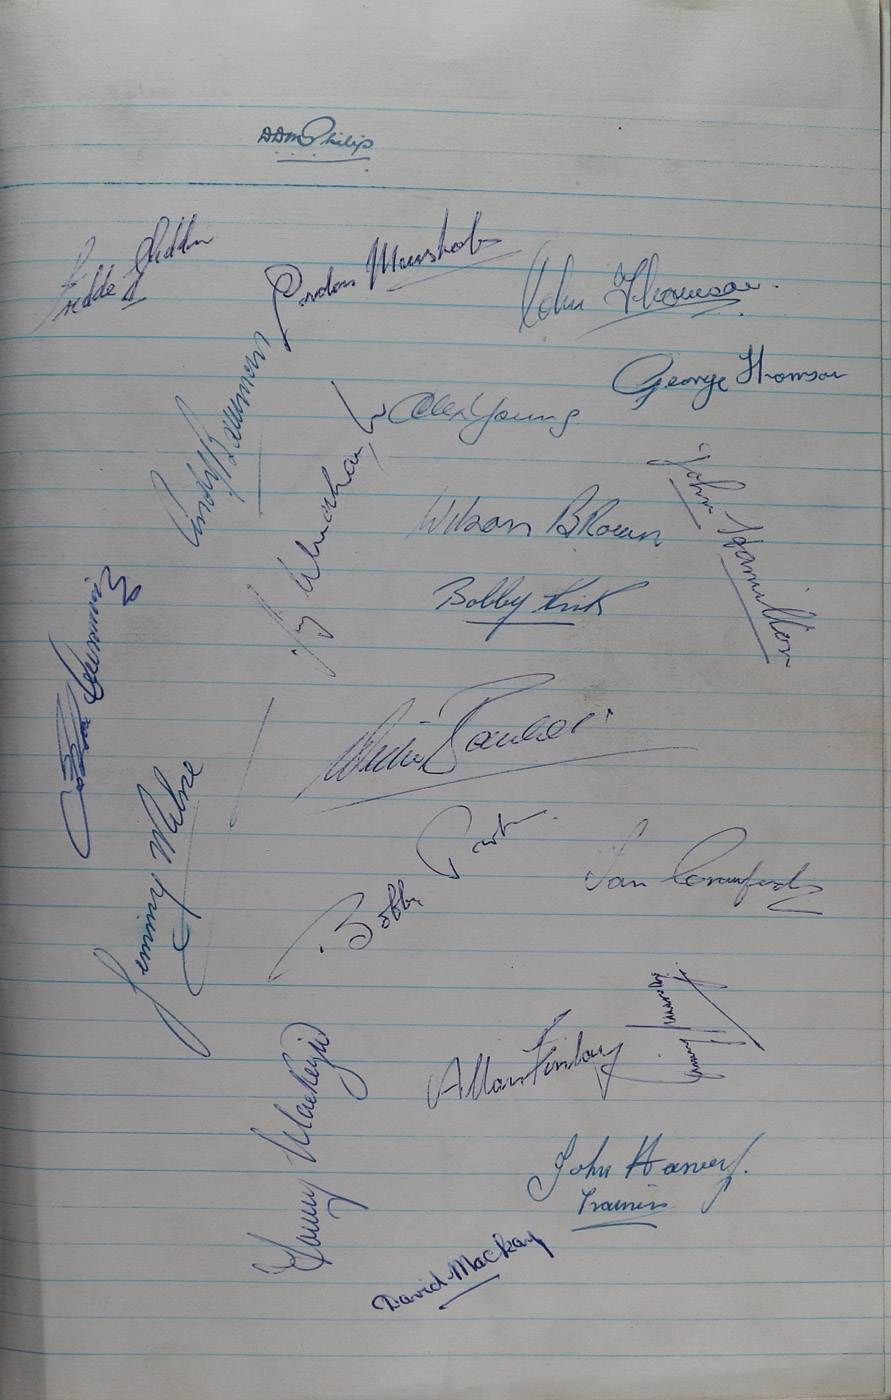 ADM Philip
Freddie Glidden
Gordon Marshall
John Thomson
George Thomson
Andy Bowman
Alex Young
Jimmy Murray
Wilson Brown
John Hamilton
Bobby Kirk
John Cumming
Willie Bauld
Jimmy Milne
Bobby
Ian Crawford
Allan Finlay
Jimmy
Tommy Mackenzie
John Harvey.
Trainer
David Mackay